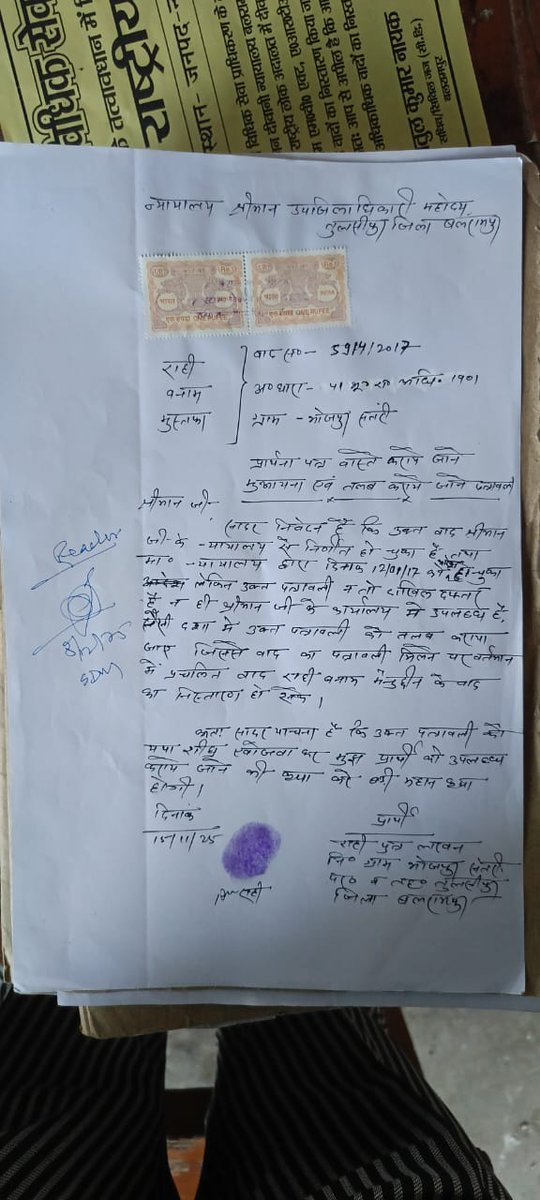 विधिक सेव
के तत्वावधान में
राष्ट्रीय
स्थान- जनपद-
न्यायालय श्रीमान उपजिलाधिकारी महोदय,
तुलसीपुर जिला बलरामपुर
भारत एक रुपया ONE RUPEE INDIA
भारत एक रुपया ONE RUPEE INDIA
राही
बनाम
मुस्तफा
वाद सं०- 5914/2017
अ० धारा- 41 भू० रा० अधि० 1901
ग्राम - भोजपुर संतरी
प्रार्थना पत्र वास्ते कराये जाने
मुआयना एवं तलब कराये जाने पत्रावली
श्रीमान जी-
सादर निवेदन है कि उक्त वाद श्रीमान
जी के न्यायालय से निर्णीत हो चुका है, तथा
मा० न्यायालय द्वारा दिनांक 12/01/17 को हो चुका
लेकिन उक्त पत्रावली न तो दाखिल दफ्तर
है न ही श्रीमान जी के कार्यालय में उपलब्ध है,
ऐसी दशा में उक्त पत्रावली को तलब कराया
जाए जिससे वाद का पत्रावली मिलने पर वर्तमान
में प्रचलित वाद राही बनाम मैनुद्दीन के वाद
का निस्तारण हो सके।
अतः सादर याचना है कि उक्त पत्रावली को
यथा शीघ्र खोजवा कर मुझ प्रार्थी को उपलब्ध
कराये जाने की कृपा करें बड़ी महान कृपा
होगी।
दिनांक
15/11/25
प्रार्थी
राही पुत्र
नि० ग्राम भोजपुर संतरी
पर० व तह० तुलसीपुर
जिला बलरामपुर
Reader
SDM